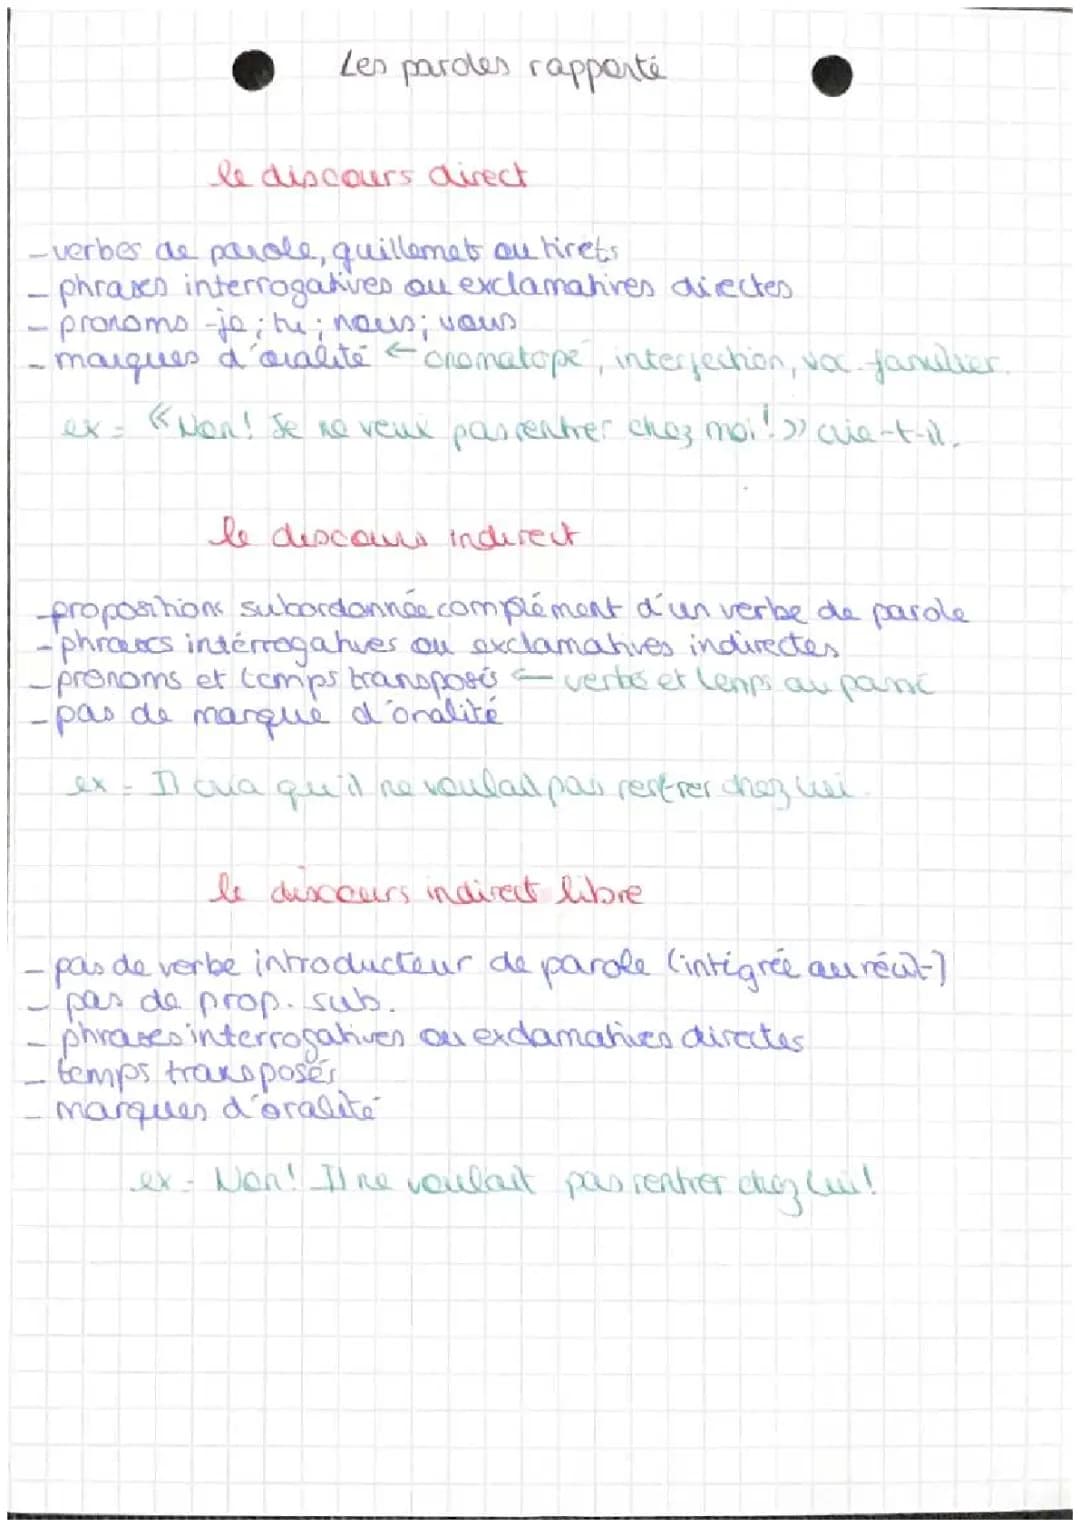 Les paroles rapporté
le discours direct
- verbes de parole, guillemets ou tirets
- phrases interrogatives ou exclamatives directes
- pronoms - je ; tu ; nous ; vous
- marques d'oralité ← onomatopé, interjection, voc. familier.
ex = « Non ! Je ne veux pas rentrer chez moi ! » crie-t-il.
le discours indirect
- propositions subordonnée complément d'un verbe de parole
- phrases intérrogatives ou exclamatives indirectes
- pronoms et temps transposés ← verbe et temps au passé
- pas de marque d'oralité
ex - Il cria qu'il ne voulait pas rentrer chez lui.
le discours indirect libre
- pas de verbe introducteur de parole (intégrée au récit)
- pas de prop. sub.
- phrases interrogatives ou exclamatives directes
- temps transposés
- marques d'oralité
ex - Non ! Il ne voulait pas rentrer chez lui !